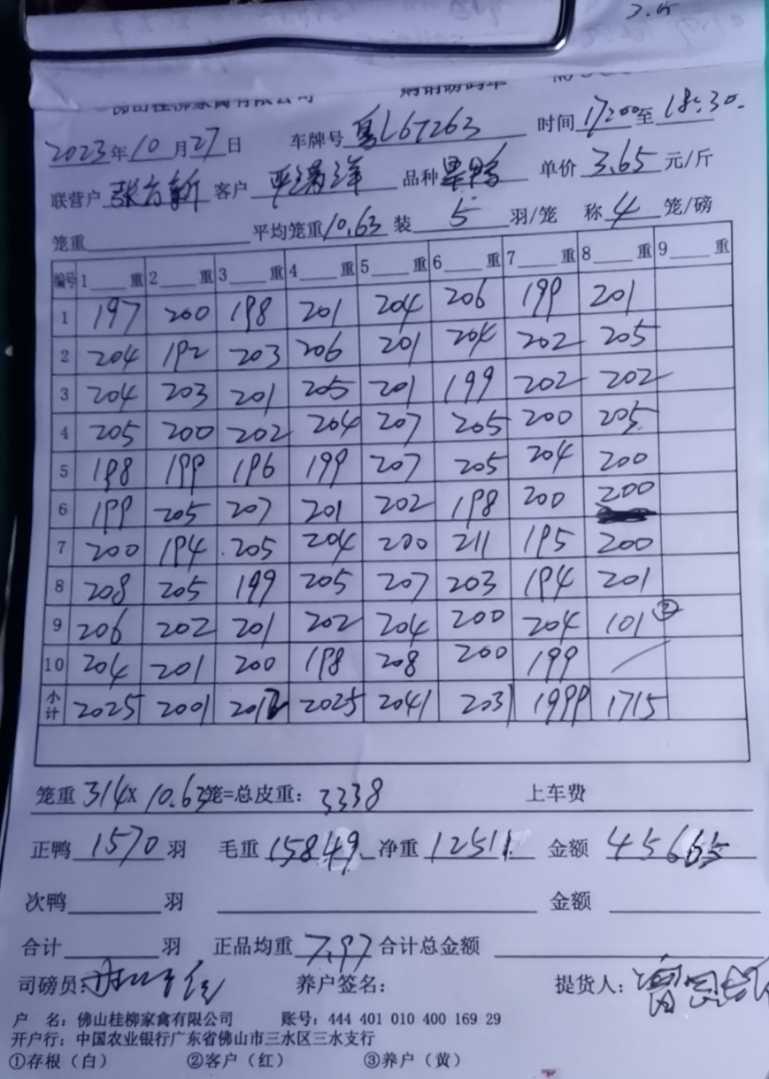 2.5
佛山桂柳家禽有限公司 购销磅码单
2023年10月27日 车牌号 粤L67263 时间 17:00至 18:30
联营户 客户 品种 单价 3.65 元/斤
笼重 平均笼重 10.63 装 5 羽/笼 称 4 笼/磅
编号 1 重 2 重 3 重 4 重 5 重 6 重 7 重 8 重 9 重
1 197 200 198 201 204 206 199 201
2 204 192 203 206 201 204 202 205
3 204 203 201 205 201 199 202 202
4 205 200 202 204 207 205 200 205
5 198 199 196 199 207 205 204 200
6 199 205 207 201 202 198 200 200
7 200 194 205 204 200 211 195 200
8 208 205 199 205 207 203 194 201
9 206 202 201 202 204 200 204 101 ②
10 204 201 200 198 208 200 199 /
小计 2025 2001 2012 2025 2041 2031 1999 1715
笼重 314X 10.63笼=总皮重: 3338 上车费
正鸭 1570 羽 毛重 15849 净重 12511 金额 45665
次鸭 羽 金额
合计 羽 正品均重 7.97 合计总金额
司磅员: 养户签名: 提货人:
户 名: 佛山桂柳家禽有限公司 账号: 444 401 010 400 169 29
开户行: 中国农业银行广东省佛山市三水区三水支行
①存根(白) ②客户(红) ③养户(黄)